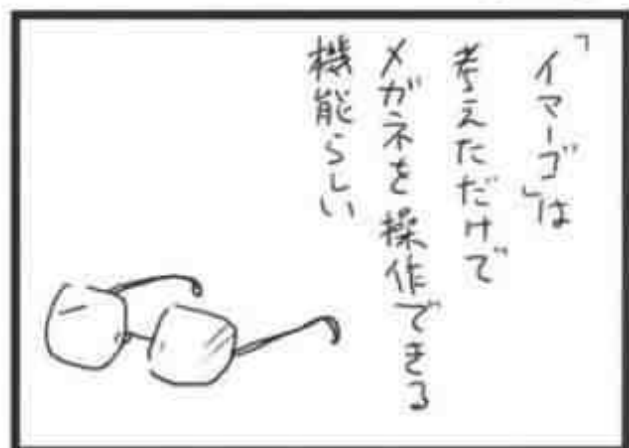 「イマーゴ」は
考えただけで
メガネを操作できる
機能らしい